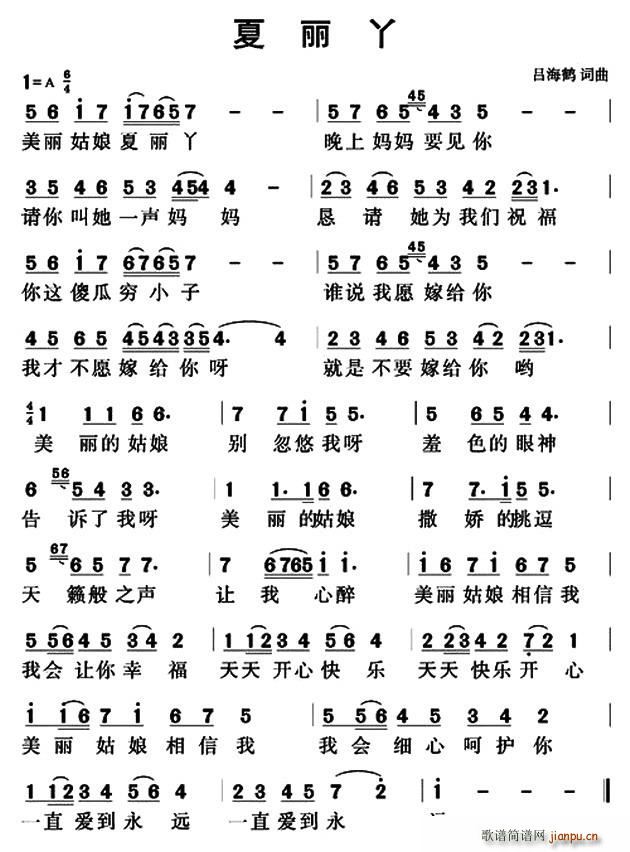 夏 丽 丫
1=A 6/4 吕海鹤 词曲
5 6 i 7 i7657 - - | 5 7 6 5 45 4 3 5 - - |
美丽姑娘夏丽丫 晚上妈妈要见你
3 5 4 6 5 3 454 4 - | 2 3 4 6 5 3 4 2 231. |
请你叫她一声妈妈 恳请她为我们祝福
5 6 i 7 67657 - - | 5 7 6 5 45 4 3 5 - - |
你这傻瓜穷小子 谁说我愿嫁给你
4 5 6 5 4543354. 4 | 2 3 4 6 5 6 4 2 231. |
我才不愿嫁给你呀 就是不要嫁给你哟
4/4 1 1 1 6 6. | 7 7 i 5 5. | 5 6 5 4 4. |
美丽的姑娘 别忽悠我呀 羞色的眼神
6 56 5 4 3 3. | 1 1. 1 6 6. | 7 7. i 5 5. |
告诉了我呀 美丽的姑娘 撒娇的挑逗
5 67 6 5 7 7. | 7 6765 i i. | i 6 7 i 6 7 |
天籁般之声 让我心醉 美丽姑娘相信我
5 564 5 34 2 | 1 123 4 56 4 | 2 223 4 2 7 1 |
我会让你幸福 天天开心快乐 天天快乐开心
i i6 5 7 6 7 5 | 5 56 4 5 3 4 2 |
美丽姑娘相信我 我会细心呵护你
1 123 4 56 5 | 1 123 4 3 7 2 | i - - ‖
一直爱到永远 一直爱到永
歌谱简谱网 jianpu.cn